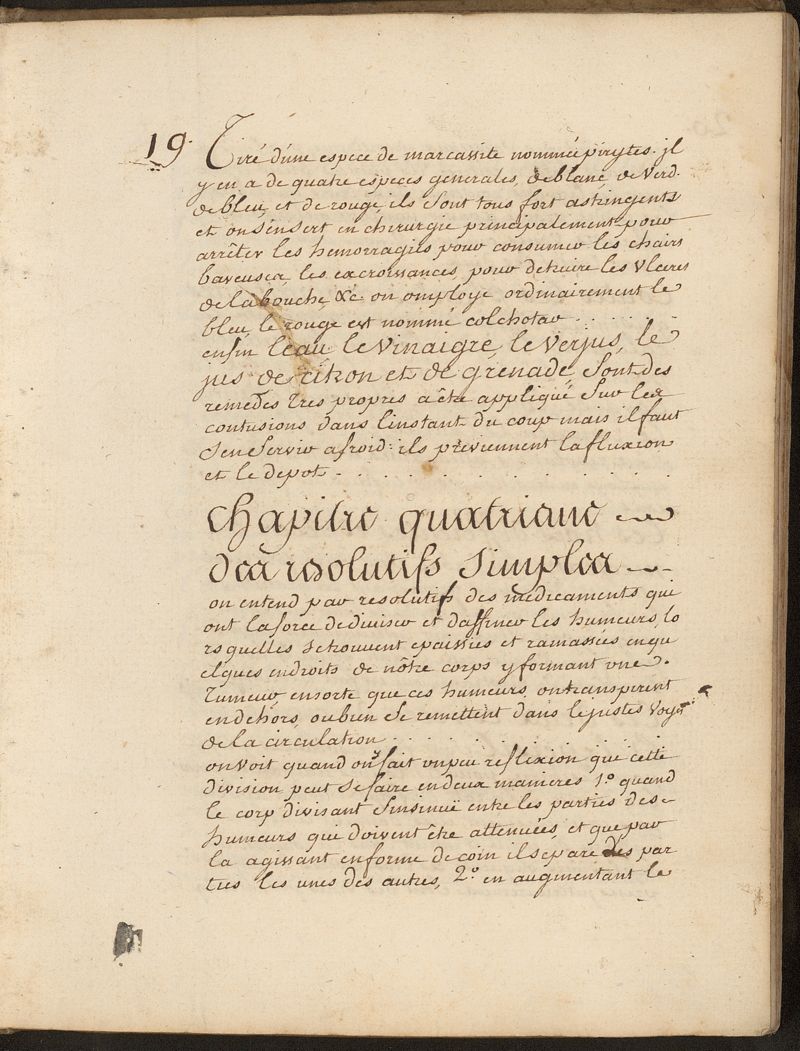 19.
Tiré d'une espece de marcassite nommée pirytes. jl
y en a de quatre especes generales, de blanc, de verd.
de bleu, et de rouge, ils sont tous fort astringents
et on s'en sert en chirurgie principalement pour
arrêter les hemorragies pour consumer les chairs
baveuses, les excroissances, pour detruire les Vlceres
de la bouche, &c on employe ordinairement le
bleu, le rouge est nommé colchotar . . . . . .
enfin l'eau, le Vinaigre, le Verjus, le
jus de citron et de grenade, sont des
remedes tres propres a être appliqué sur les
contusions dans l'instant du coup mais il faut
s'en servir a froid: ils previennent la fluxion
et le depot . . . . . . . . .
Chapitre quatrieme
des resolutifs simples
on entend par resolutifs des medicaments qui
ont la force de diviser et d'affiner les humeurs, lo
rsquelles se trouvent epaissies et ramassées en qu
elques endroits de nôtre corps y formant vne.
Tumeur, en sorte que ces humeurs, ou transpirent
en dehors, ou bien se remettent dans le justes voyes
de la circulation . . . . . . . .
on voit quand on y fait vn peu reflexion que cette
division peut se faire en deux manieres 1.º quand
le corp divisant s'insinuë entre les parties des
humeurs qui doivent être attenuées, et que par
la agissant en forme de coin il separe des par
ties les unes des autres, 2.º en augmentant le